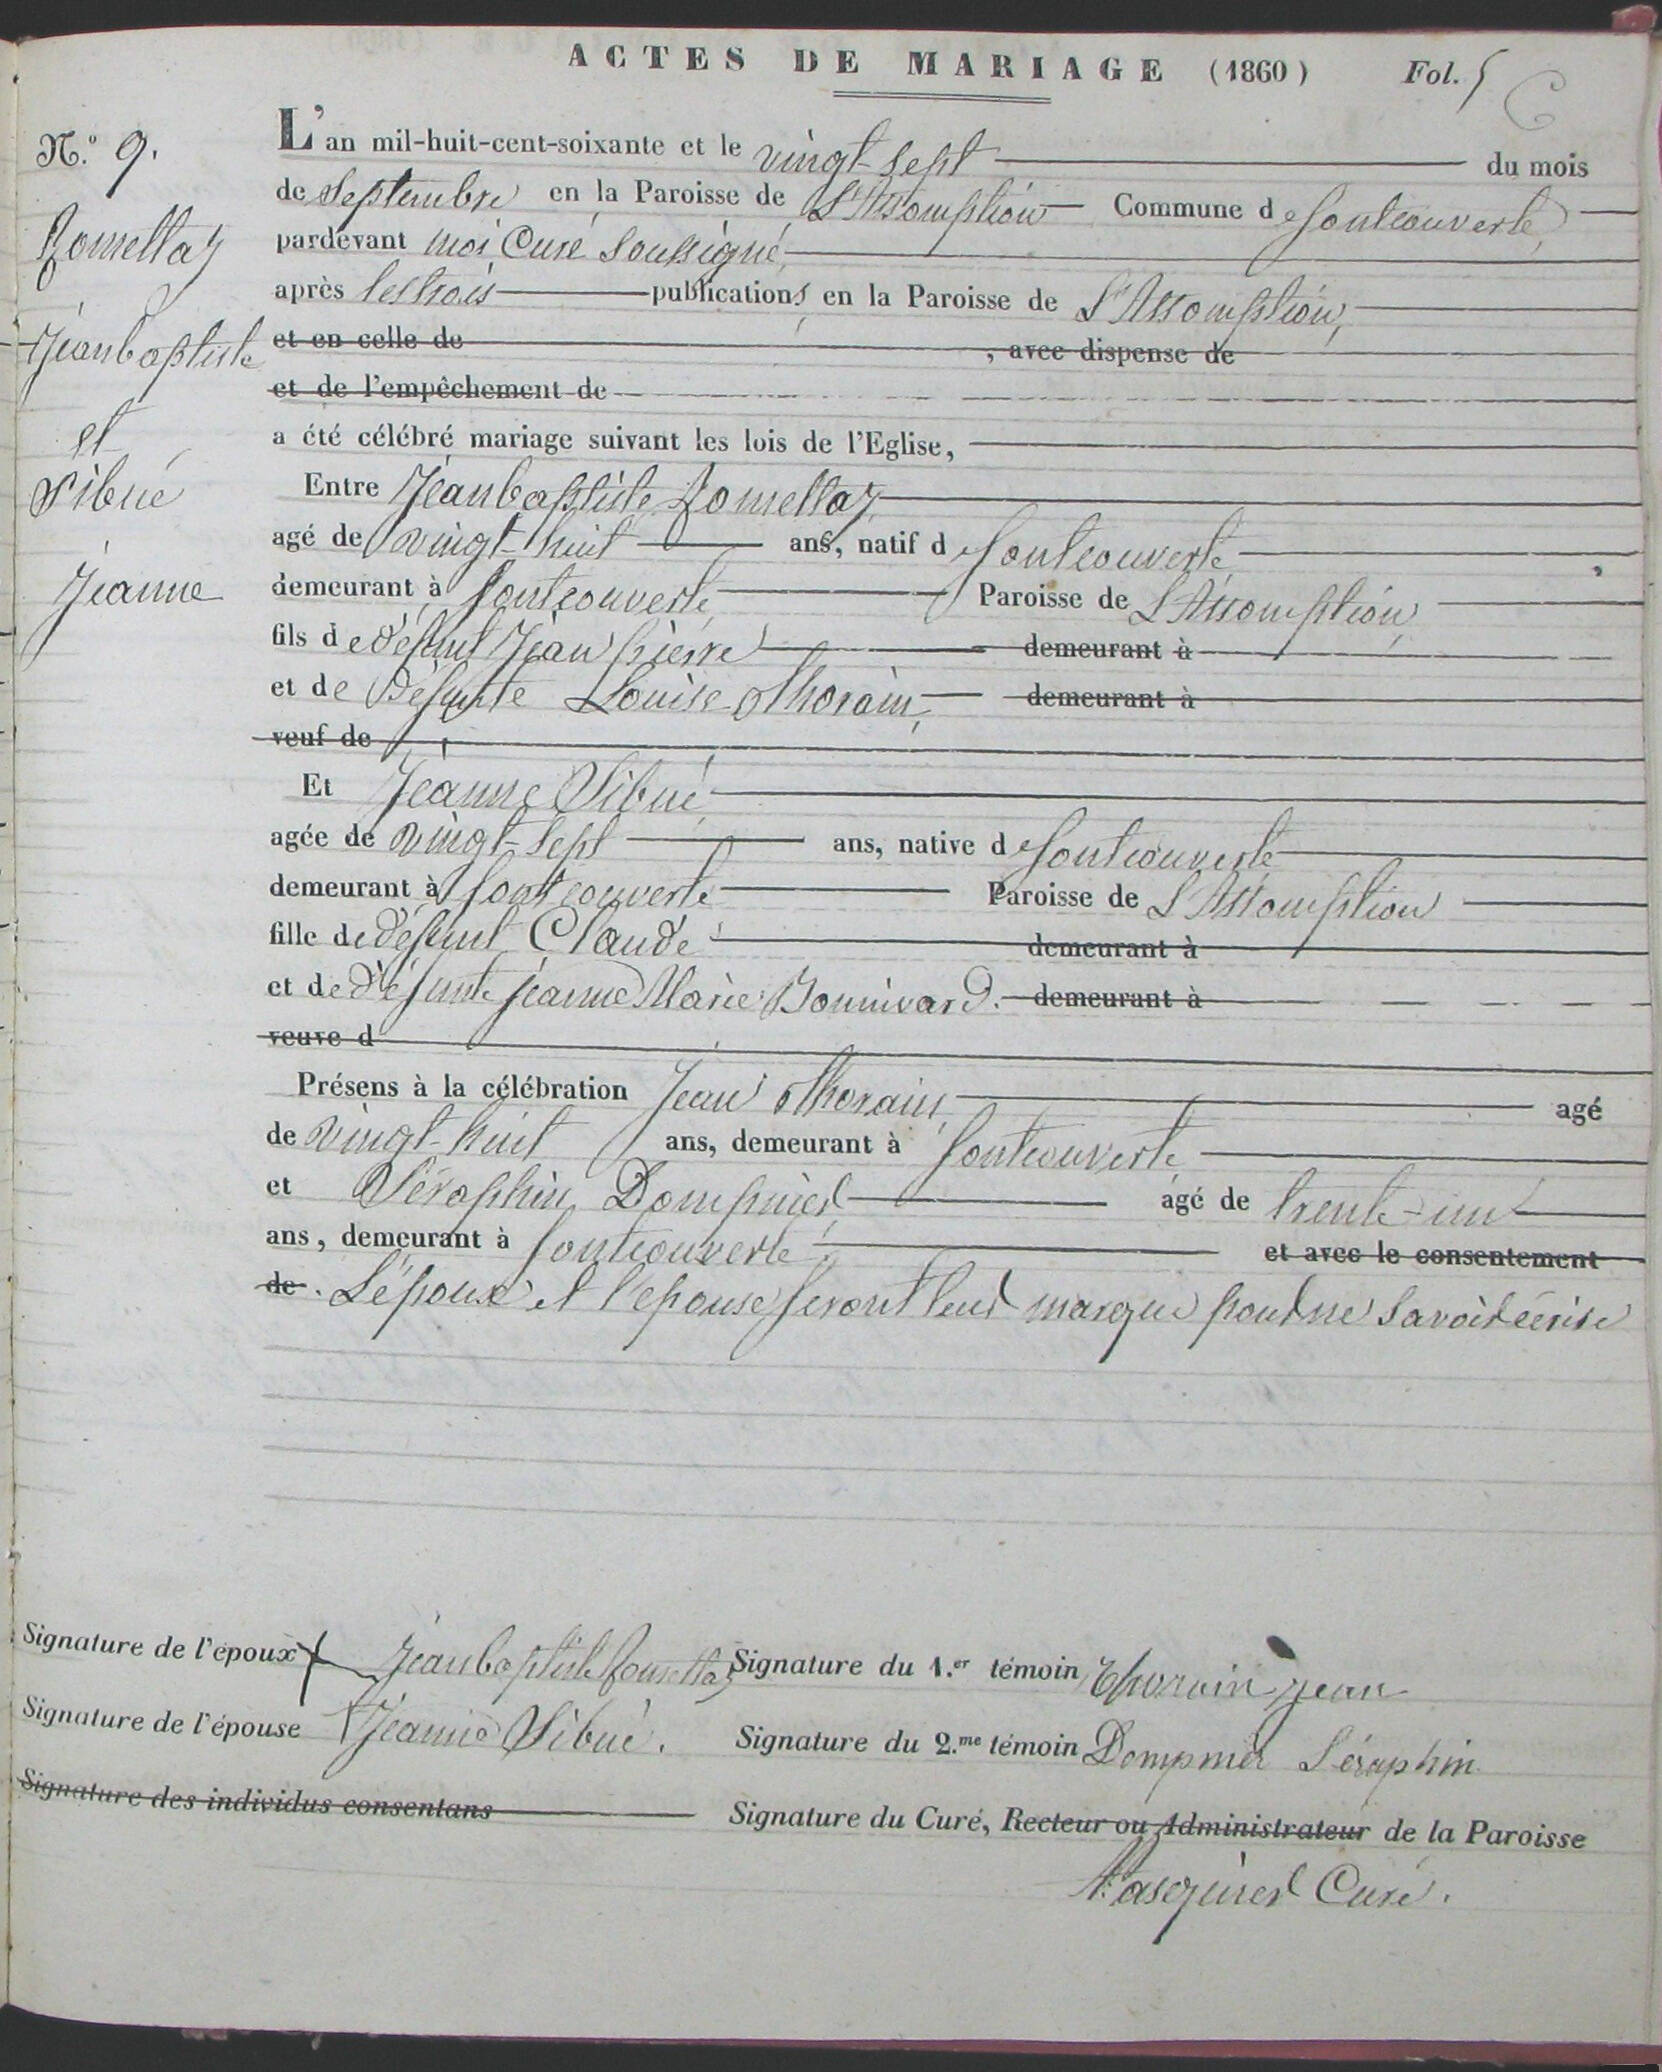 ACTES DE MARIAGE (1860) Fol. 5
N.º 9.
L'an mil-huit-cent-soixante et le vingt-sept du mois
de Septembre en la Paroisse de L'Assomption Commune de fontcouverte,
pardevant moi Curé soussigné,
après les trois publications en la Paroisse de L'Assomption,
et en celle de , avec dispense de
et de l'empêchement de
a été célébré mariage suivant les lois de l'Eglise,
Romettaz
Jeanbaptiste
et
Sibué
Jeanne
Entre Jeanbaptiste Romettaz
agé de vingt-huit ans, natif de fontcouverte
demeurant à fontcouverte Paroisse de L'Assomption
fils de défunt Jean pierre demeurant à
et de Défunte Louise Thorain, demeurant à
veuf de
Et Jeanne Sibué
agée de vingt-sept ans, native de fontcouverte
demeurant à fontcouverte Paroisse de L'Assomption
fille de défunt Claude demeurant à
et de défunte jeanne Marie Bonnivard. demeurant à
veuve d
Présens à la célébration Jean Thorain agé
de vingt-huit ans, demeurant à fontcouverte
et Séraphin Dompnier agé de trente-un
ans, demeurant à fontcouverte et avec le consentement
de. L'époux et l'epouse feront leur marque pour ne savoir écrire
Signature de l'époux Jeanbaptiste Romettaz Signature du 1.er témoin Thorain jean
Signature de l'épouse Jeanne Sibué. Signature du 2.me témoin Dompnier Séraphin
Signature des individus consentans Signature du Curé, Recteur ou Administrateur de la Paroisse
Curé.